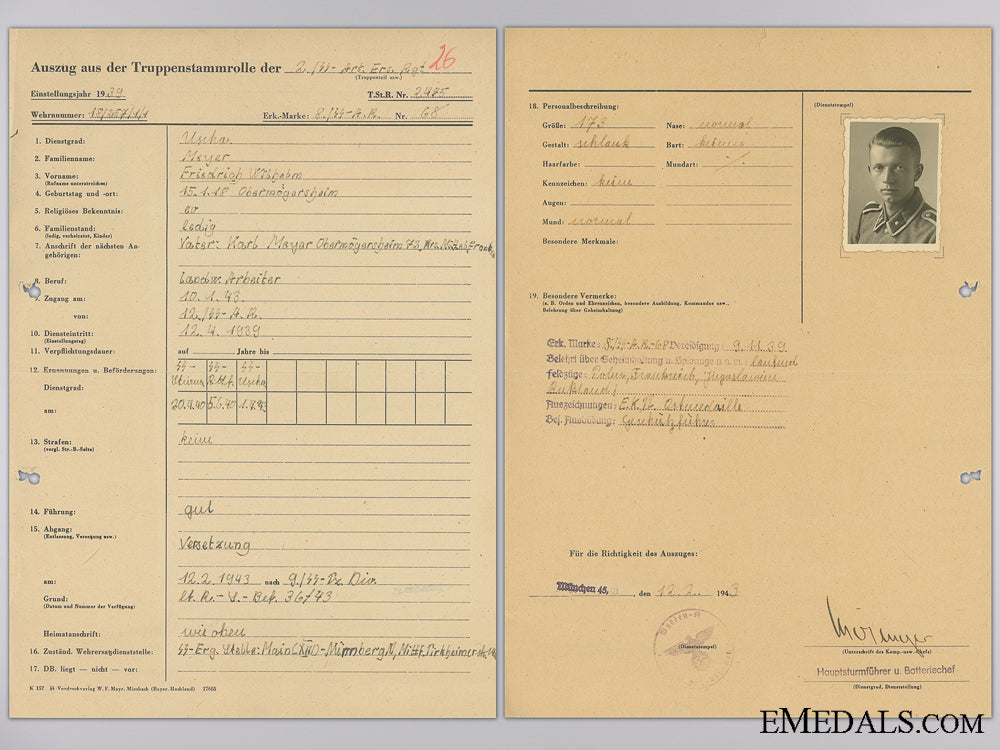 Auszug aus der Truppenstammrolle der 2./SS-Art. Ers. Rgt. 26
(Truppenteil usw.)
Einstellungsjahr 1939 T.St.R. Nr. 2485
Wehrnummer: Erk.-Marke: 8./SS-A.R. Nr. 68
1. Dienstgrad: Uscha.
2. Familienname: Meyer
3. Vorname: Friedrich Wilhelm
(Rufname unterstreichen)
4. Geburtstag und -ort: 15.1.18 Obermögersheim
5. Religiöses Bekenntnis: ev
6. Familienstand: ledig
(ledig, verheiratet, Kinder)
7. Anschrift der nächsten An- Vater: Karl Meyer Obermögersheim 73,
gehörigen:
8. Beruf: Landw. Arbeiter
9. Zugang am: 10.1.43.
von: 12./SS-A.R.
10. Diensteintritt: 12.4.1939
(Einstellungstag)
11. Verpflichtungsdauer: auf Jahre bis
12. Ernennungen u. Beförderungen: SS- SS- SS-
Dienstgrad: Sturm. Rttf. Uscha
am: 20.4.40 5.6.40 1.4.43
13. Strafen: keine
(vergl. Str.-B.-Seite)
14. Führung: gut
15. Abgang: Versetzung
(Entlassung, Versetzung usw.)
am: 12.2.1943 nach 9./SS-Pz. Div.
Grund: lt. R.-S.-Bef. 36/43
(Datum und Nummer der Verfügung)
Heimatanschrift: wie oben
16. Zuständ. Wehrersatzdienststelle: SS-Erg. Stelle: Main (XIII)-Nürnberg
17. DB. liegt — nicht — vor:
K 157 SS-Vordruckverlag W. F. Mayr, Miesbach (Bayer. Hochland) 27065
18. Personalbeschreibung: (Dienststempel)
Größe: 173 Nase: normal
Gestalt: schlank Bart: keinen
Haarfarbe: Mundart: -/-
Kennzeichen: keine
Augen:
Mund: normal
Besondere Merkmale:
19. Besondere Vermerke:
(z. B. Orden und Ehrenzeichen, besondere Ausbildung, Kommandos usw.,
Belehrung über Geheimhaltung)
Erk. Marke: 8/SS-A.R.-68 Vereidigung: 9.11.39
Belehrt über Geheimhaltung u. Spionage u.s.w.: laufend
Feldzüge: Polen, Frankreich, Jugoslawien
Rußland
Auszeichnungen: E.K.II. Ostmedaille
Bes. Ausbildung: Geschützführer
Für die Richtigkeit des Auszuges:
München 45, den 12.2. 1943
Waffen-SS
(Dienststempel)
(Unterschrift des Komp.-usw.-Chefs)
Hauptsturmführer u. Batteriechef
(Dienstgrad, Dienststellung)
EMEDALS.COM